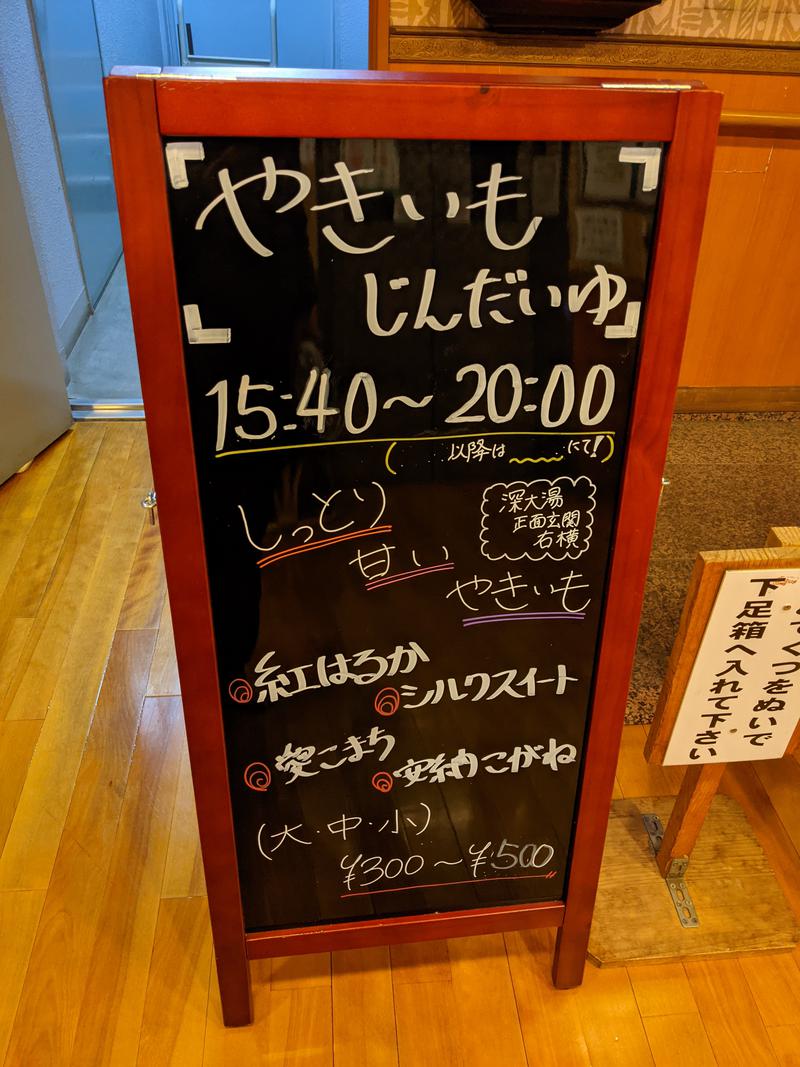 やきいも
じんだいゆ
15:40～20:00
( 以降は にて!)
しっとり
甘い
やきいも
深大湯
正面玄関
右横
紅はるか
シルクスイート
愛こまち
安納こがね
(大・中・小)
¥300～¥500
てくつをぬいで
下足箱へ入れて下さい